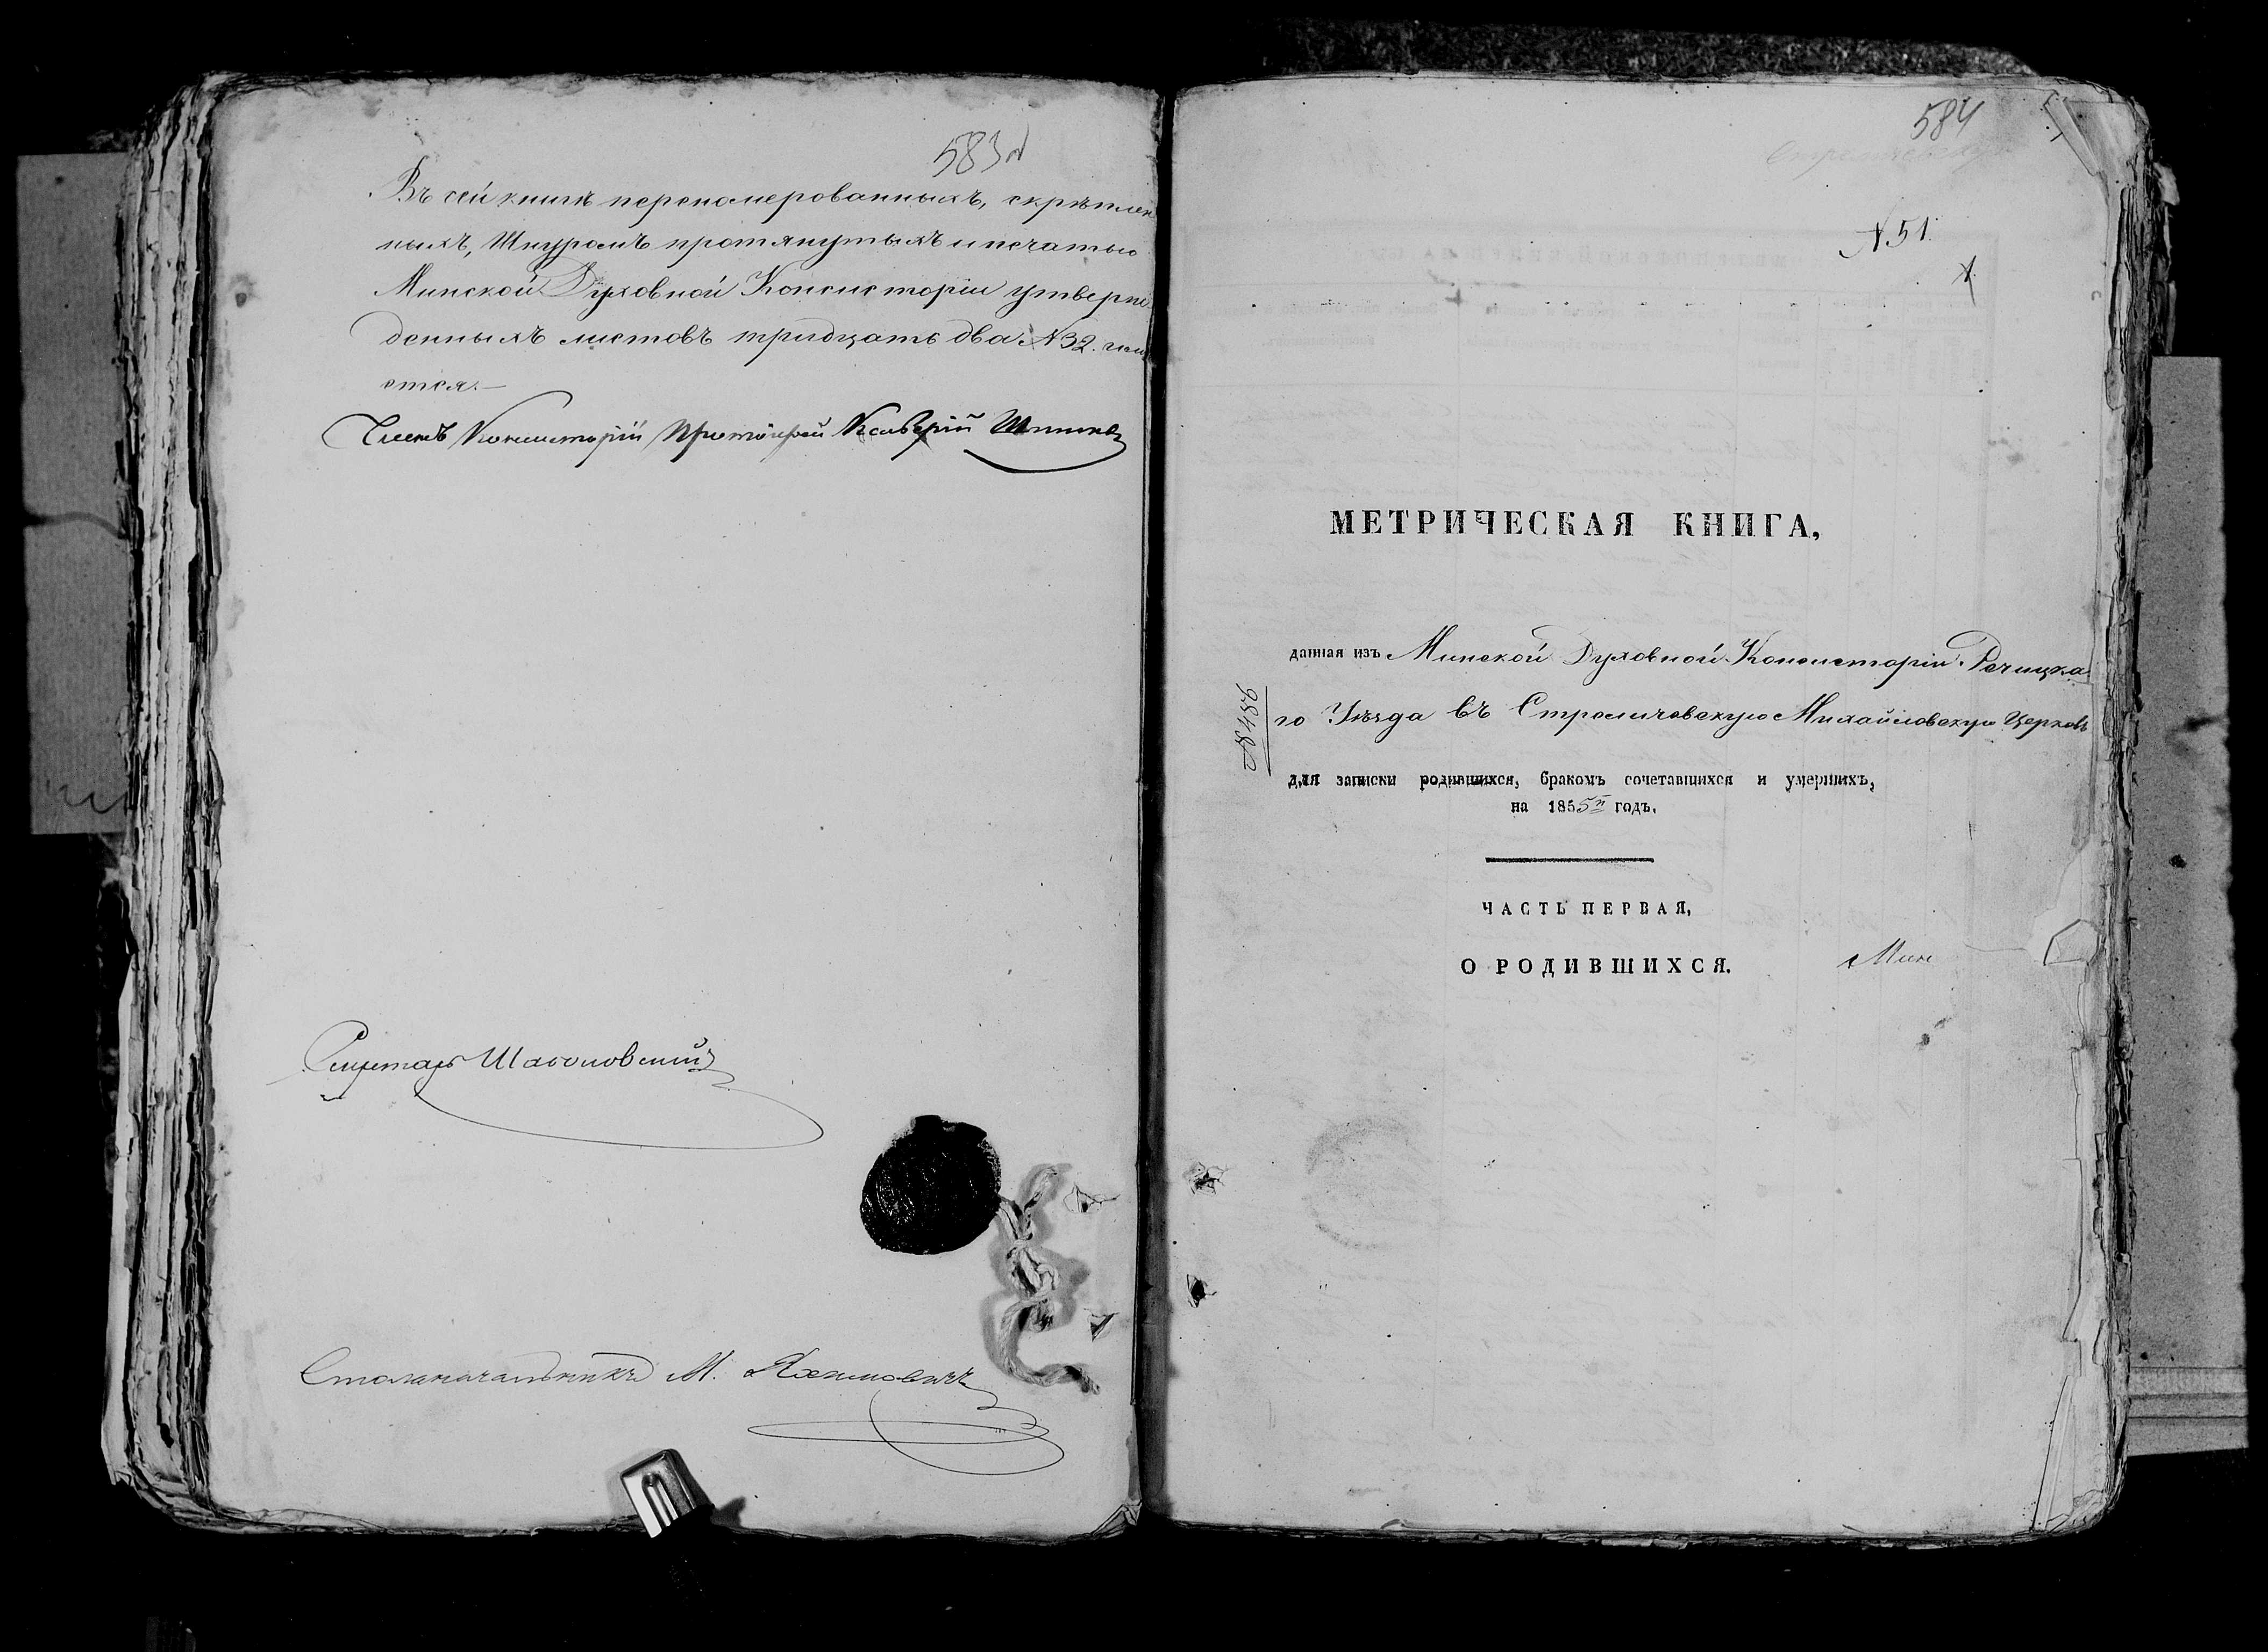 583
Въ сей книгѣ переномерованныхъ, скрѣплен
ныхъ, Шнуромъ протянутыхъ и печатью
Минской Духовной Консисторіи утверж
денныхъ листовъ тридцать два №32. име
ется.—
Членъ Консисторіи Протоіерей
Секретарь
Столоначальникъ М.
584
№51.
1.
МЕТРИЧЕСКАЯ КНИГА,
данная изъ Минской Духовной Консисторіи Речицка
го Уѣзда въ Стреличевскую Михайловскую Церковь
№8486
для записки родившихся, бракомъ сочетавшихся и умершихъ,
на 1855й годъ.
ЧАСТЬ ПЕРВАЯ,
О РОДИВШИХСЯ.
Мин